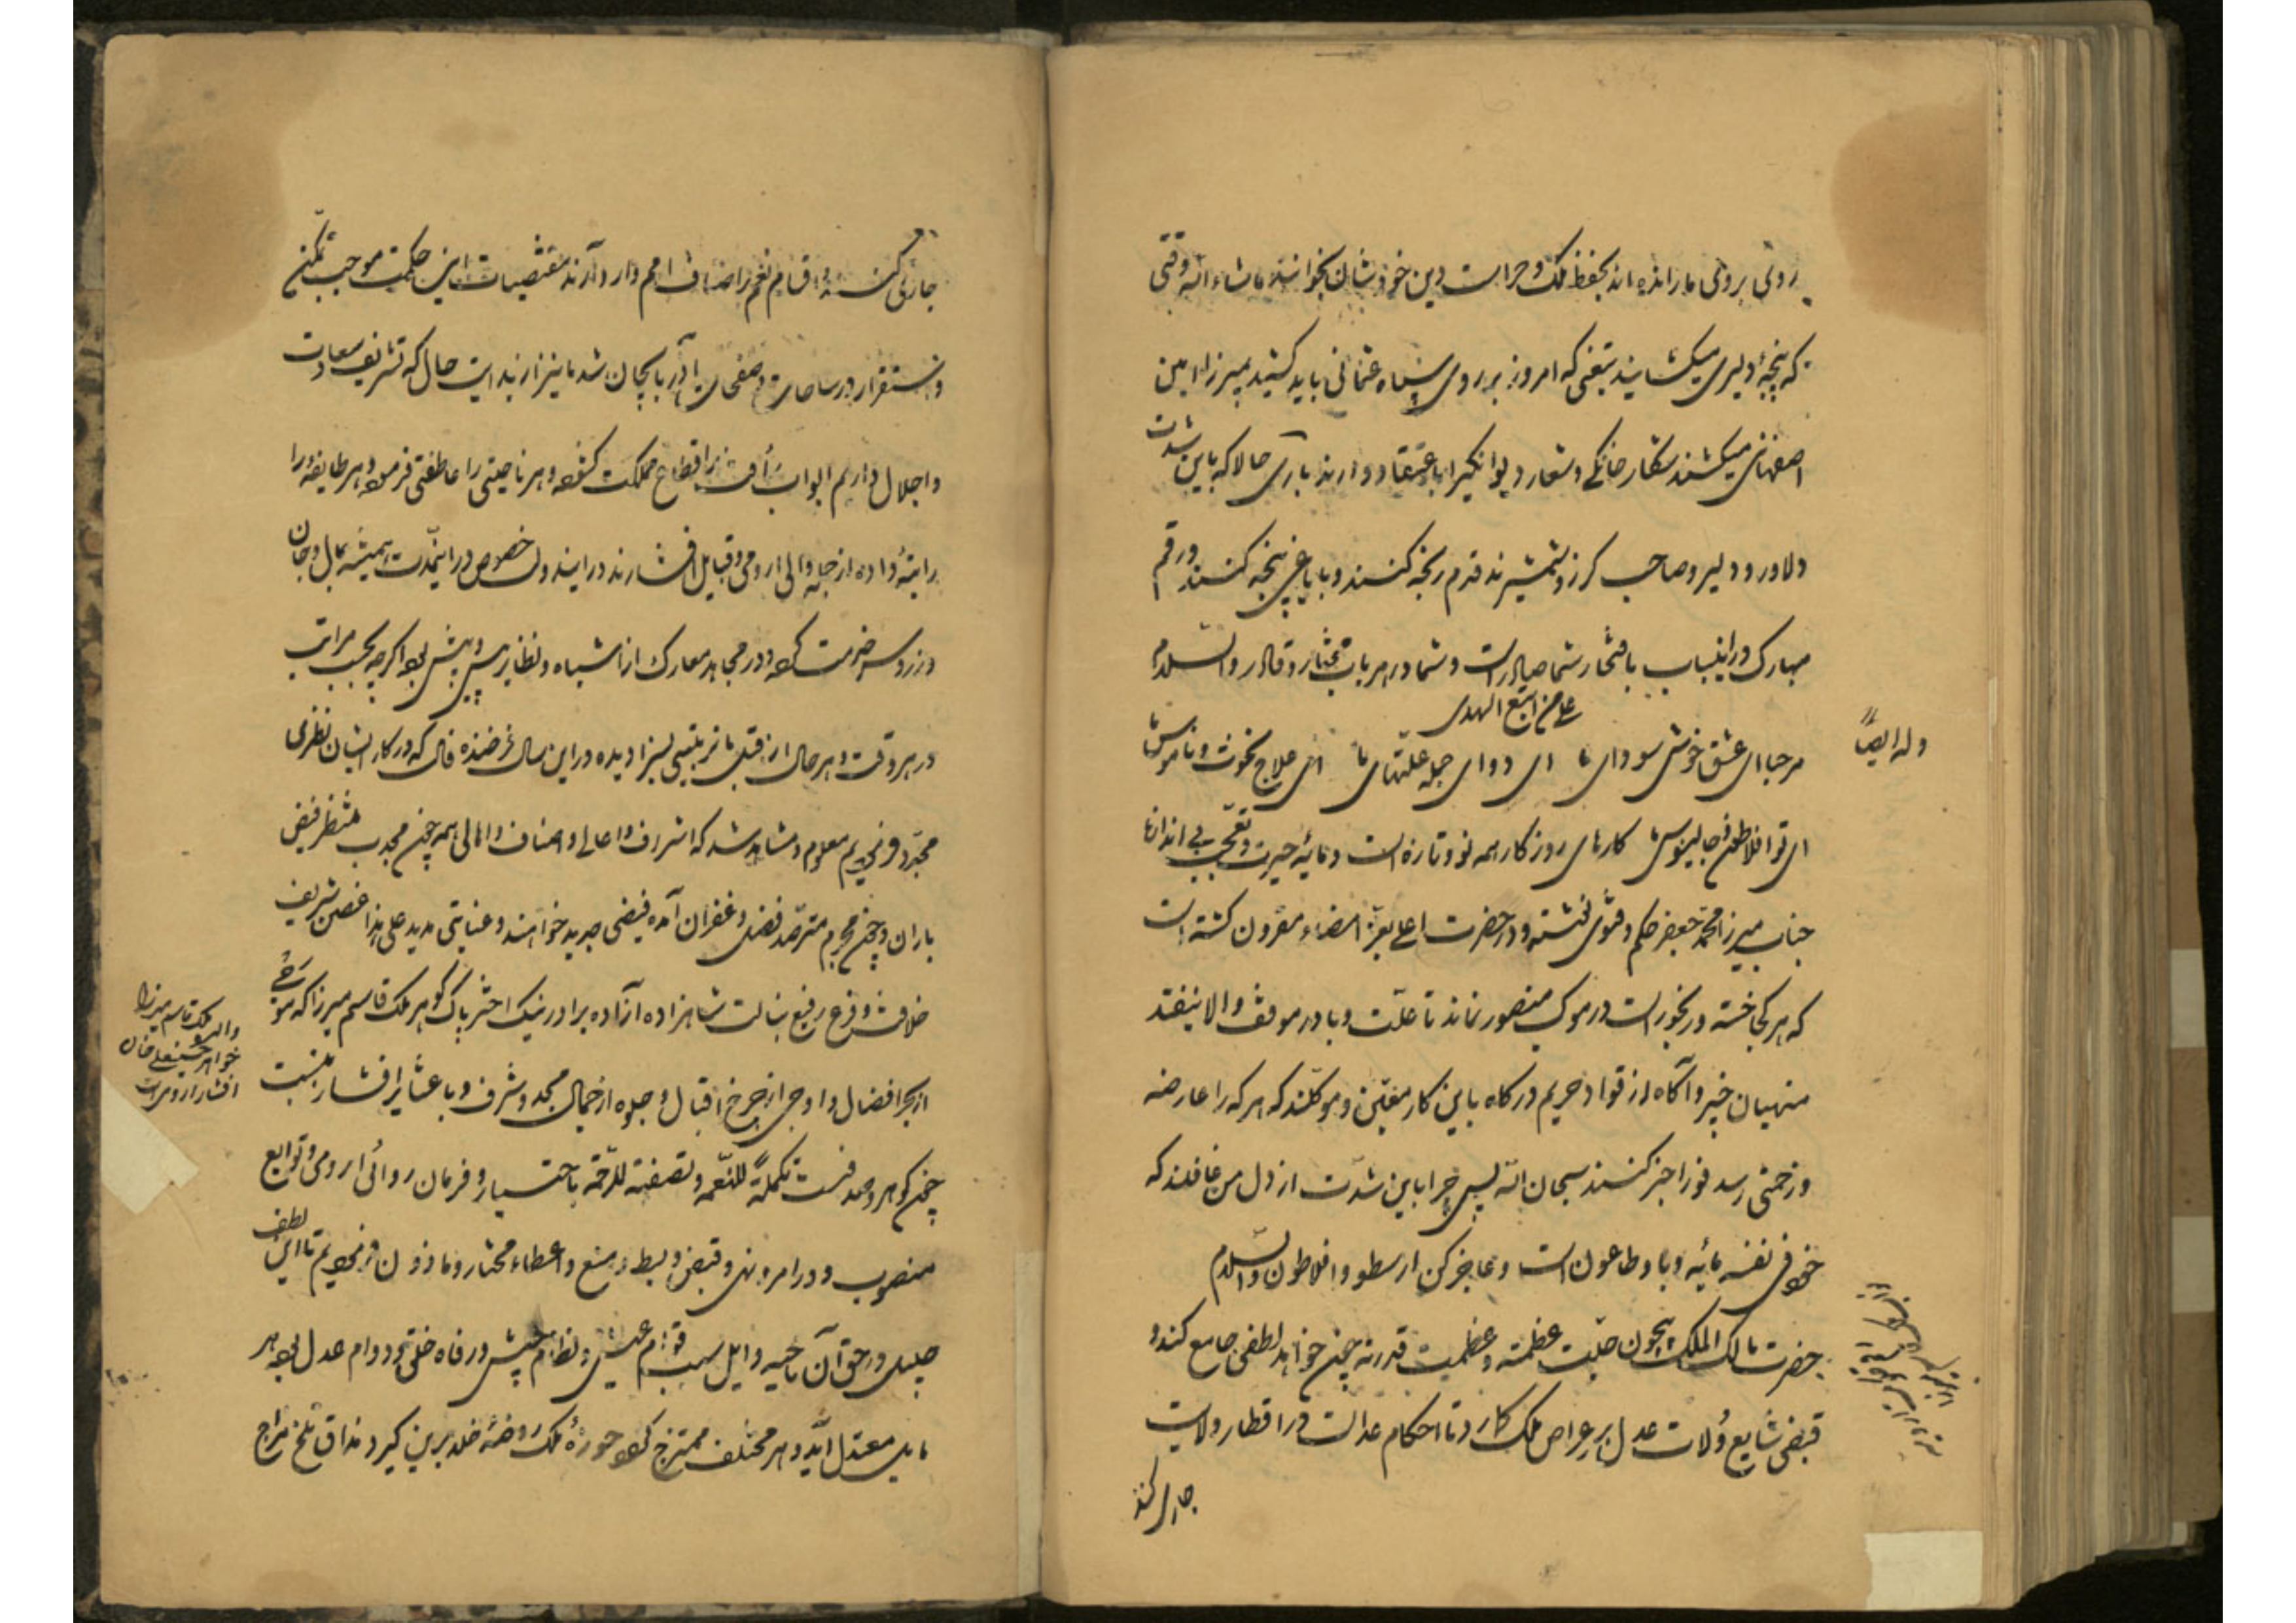 روئی بروئی ما رانده اند بحفظ ملک و حراست دین خودشان بخوانند ماشاء الله وقتی
که پنجۀ دلیری میکشایند تیغی که امروز بر روی سپاه عثمانی باید کشید بمیرزا امین
اصفهانی میکشند شکار خانگی و شعار دیوانگیرا باعتقاد دارند باری حالا که باین شدت
دلاور و دلیر و صاحب کرز و شمشیرند قدم رنجه کنند و با یاغی پنجه کنند و رقم
مبارک در اینباب بافتخار شما صادر است و شما در هر باب مختار و قادر و السلام
علی من اتبع الهدی
وله ایضاً
مرحبا ای عشق خوش سودای ما ای دوای جمله علتهای ما ای علاج نخوت و ناموس ما
ای تو افلاطون و جالینوس ما کارهای روزکار همه نو و تازه است و مایۀ حیرت و تعجب بی اندازه
جناب میرزا محمد جعفر حکم و فتوی نوشته و در حضرت اعلی بعز امضاء مقرون کشته است
که هر کجا خسته و رنجور است در موکب منصور نماند تا علت و با در موقف والا نیفتد
منهیان خبیر و آکاه از قواد حریم درکاه باین کار معین و موکلند که هر که را عارضه
و زحمتی رسد فورا خبر کنند سبحان الله پس چرا باین شدت از دل من غافلند که
خود فی نفسه مایۀ وبا و طاعون است و عاجز کن ارسطو و افلاطون والسلام
حضرت مالک الملک بیچون جلت عظمته و عظمت قدرته چون خواهد لطفی جامع کند و
فیضی شایع ولات عدل بر عراص ملک کمارد تا احکام عدالت در اقطار ولایت
جاری کند
جاری کنند و اقسام نعم را اضاف امم وارد آرند مقتضیات این حکمت موجب تمکن
و استقرار در ساحات و صفحات آذربایجان شد ما نیز از بدایت حال که تشریف سعادت
و اجلال داریم ابواب رأفت بر اقطاع مملکت کشوده و هر ناحیتی را عاطفتی فرموده و هر طایفه را
رایتۀ داده از جمله والی ارومی و قبایل افشارند در ایندولت خصوص در اینمدت همیشه بمال و جان
در زروسر خدمت کرده و در مجاهد معارک از اشباه و نظایر پس و پیش بوده اکرچه بحسب مراتب
در هر وقت و هر حال از قبل ما تربیتی بسزا دیده در این سال فرخنده فال که در کار ایشان نظری
مجدد فرمودیم معلوم و مشاهد شد که اشراف و اعالی و اصناف و اهالی همه چون مجدب منتظر فیض
باران و چون مجرم مترصد فضل و غفران آمده فیضی جدید خواهند و عنایتی مدید علی هذا غصن شریف
خلافت و فرع رفیع بسالت شاهزاده آزاده برادر نیک اختر پاک کوهر ملک قاسم میرزا که موجی
از بحر افضال و اوجی از چرخ اقبال و جلوه از جمال مجد و شرف و با عشایر افشار بنسبت
والدۀ ملک قاسم میرزا
خواهر حسینعلی خان
افشار ارومی است
چون کوهر و صدفست تکملة للنعمه و تصفیة للرحمة باختیار و فرمان روائی ارومی و توابع
منصوب و در امر و نهی و قبض و بسط و منع و اعطاء مختار و ماذون فرمودیم تا این لطف
جلیل در حق آن ناحیه و ایل سبب قوام عیش و نظام جیش و رفاه خلق و دوام عدل بوده هر
مایل معتدل آید و هر مختلف ممتزج کرده حوزۀ ملک روضۀ خلد برین کیرد و مذاق تلخ مزاج